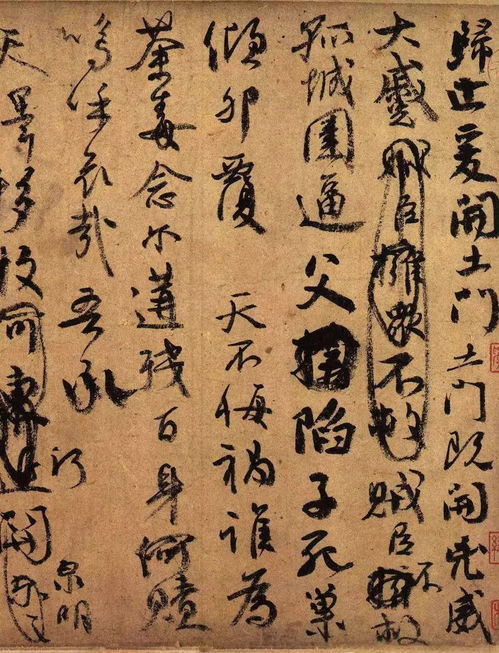 歸止爰開土門土門既開兇威
大蹙賊臣擁衆不救賊臣不救
孤城圍逼父陷子死巢
傾卵覆天不悔禍誰為
荼毒念爾遘殘百身何贖
嗚呼哀哉吾承
泉明
天澤移牧河關